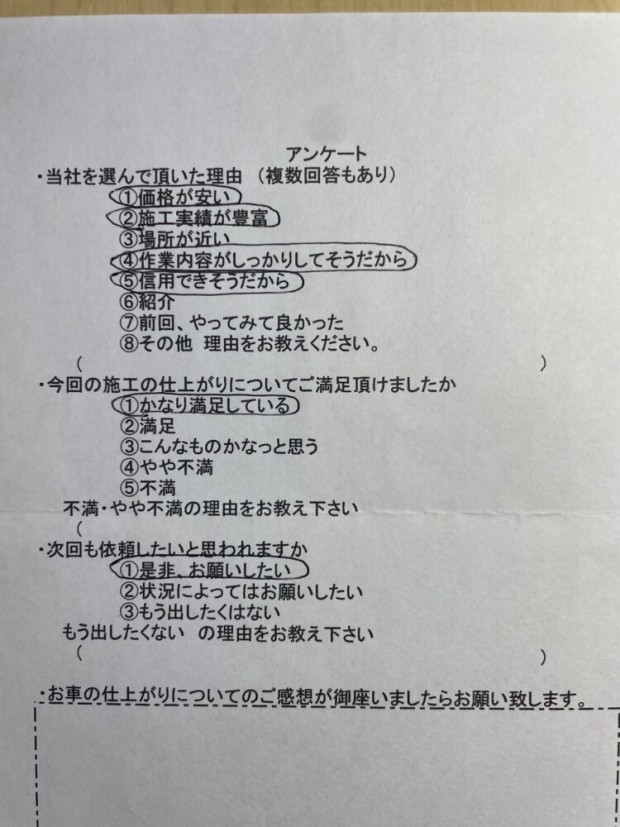 アンケート
・当社を選んで頂いた理由　（複数回答もあり）
①価格が安い
②施工実績が豊富
③場所が近い
④作業内容がしっかりしてそうだから
⑤信用できそうだから
⑥紹介
⑦前回、やってみて良かった
⑧その他　理由をお教えください。
（　　　　　　　　　　　　　　　　　　　　　　）
・今回の施工の仕上がりについてご満足頂けましたか
①かなり満足している
②満足
③こんなものかなっと思う
④やや不満
⑤不満
不満・やや不満の理由をお教え下さい
（
・次回も依頼したいと思われますか
①是非、お願いしたい
②状況によってはお願いしたい
③もう出したくはない
もう出したくない　の理由をお教え下さい
（　　　　　　　　　　　　　　　　　　　　　　）
・お車の仕上がりについてのご感想が御座いましたらお願い致します。